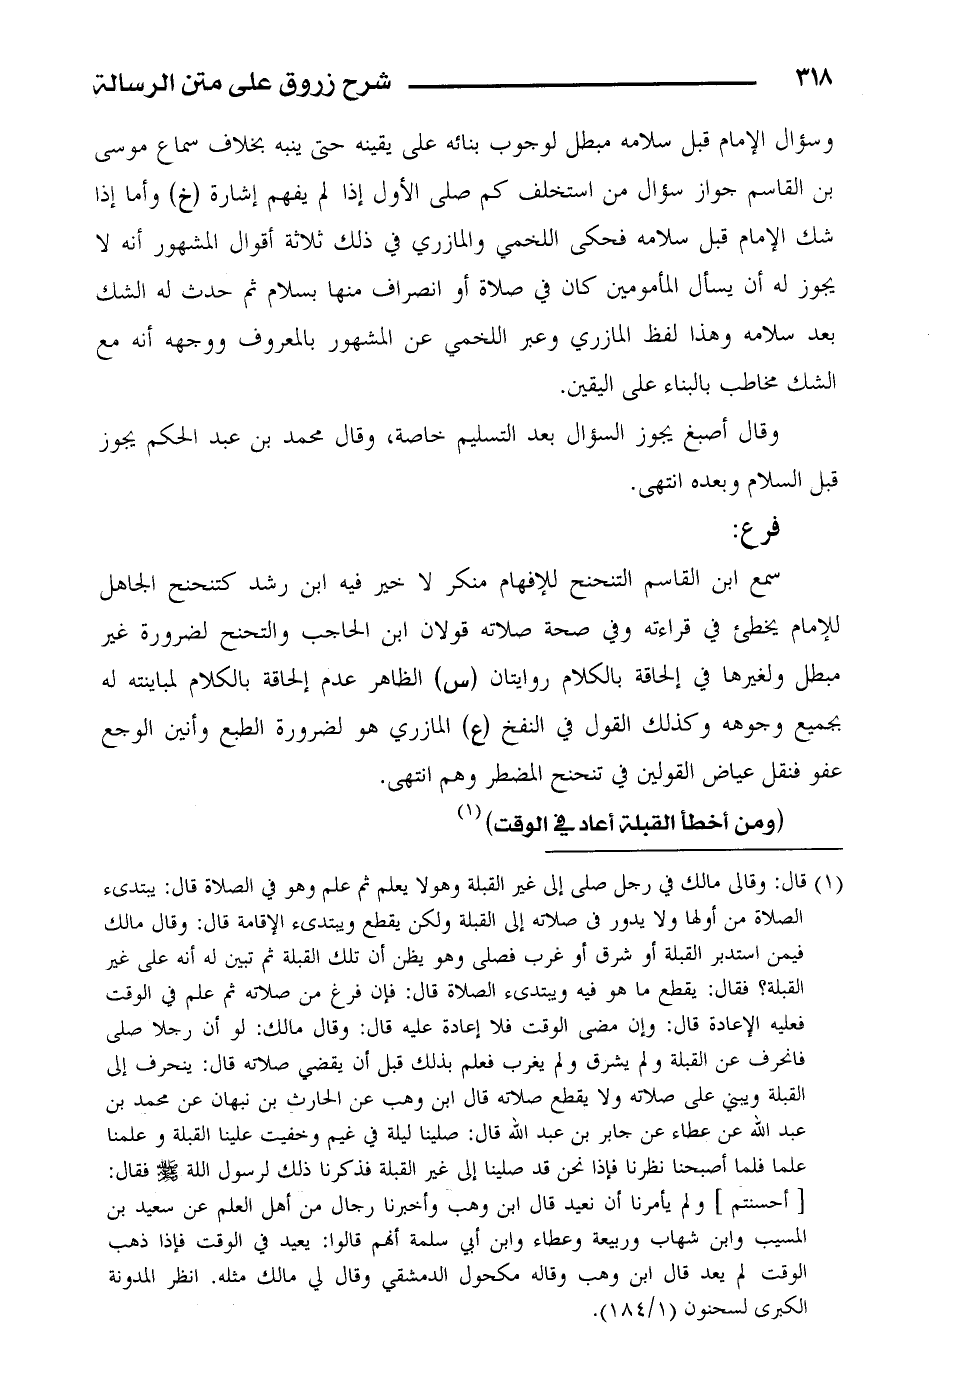 ٣١٨ شرح زروق على متن الرسالة
وسؤال الإمام قبل سلامه مبطل لوجوب بنائه على يقينه حتى ينبه بخلاف سماع موسى
بن القاسم جواز سؤال من استخلف كم صلى الأول إذا لم يفهم إشارة (خ) وأما إذا
شك الإمام قبل سلامه فحكى اللخمي والمازري في ذلك ثلاثة أقوال المشهور أنه لا
يجوز له أن يسأل المأمومين كان في صلاة أو انصراف منها بسلام ثم حدث له الشك
بعد سلامه وهذا لفظ المازري وعبر اللخمي عن المشهور بالمعروف ووجهه أنه مع
الشك مخاطب بالبناء على اليقين.
وقال أصبغ يجوز السؤال بعد التسليم خاصة، وقال محمد بن عبد الحكم يجوز
قبل السلام وبعده انتهى.
فرع:
سمع ابن القاسم التنحنح للإفهام منكر لا خير فيه ابن رشد كتنحنح الجاهل
للإمام يخطئ في قراءته وفي صحة صلاته قولان ابن الحاجب والتحنح لضرورة غير
مبطل ولغيرها في إلحاقة بالكلام روايتان (س) الظاهر عدم إلحاقة بالكلام لمباينته له
بجميع وجوهه وكذلك القول في النفخ (ع) المازري هو لضرورة الطبع وأنين الوجع
عفو فنقل عياض القولين في تنحنح المضطر وهم انتهى.
(ومن أخطأ القبلة أعاد في الوقت)(١)
(١) قال: وقالى مالك في رجل صلى إلى غير القبلة وهولا يعلم ثم علم وهو في الصلاة قال: يبتدىء
الصلاة من أولها ولا يدور فى صلاته إلى القبلة ولكن يقطع ويبتدىء الإقامة قال: وقال مالك
فيمن استدبر القبلة أو شرق أو غرب فصلى وهو يظن أن تلك القبلة ثم تبين له أنه على غير
القبلة؟ فقال: يقطع ما هو فيه ويبتدىء الصلاة قال: فإن فرغ من صلاته ثم علم في الوقت
فعليه الإعادة قال: وإن مضى الوقت فلا إعادة عليه قال: وقال مالك: لو أن رجلا صلى
فانحرف عن القبلة ولم يشرق ولم يغرب فعلم بذلك قبل أن يقضي صلاته قال: ينحرف إلى
القبلة ويبني على صلاته ولا يقطع صلاته قال ابن وهب عن الحارث بن نبهان عن محمد بن
عبد الله عن عطاء عن جابر بن عبد الله قال: صلينا ليلة في غيم وخفيت علينا القبلة و علمنا
علما فلما أصبحنا نظرنا فإذا نحن قد صلينا إلى غير القبلة فذكرنا ذلك لرسول اللة ﷺ فقال:
[ أحسنتم ] ولم يأمرنا أن نعيد قال ابن وهب وأخبرنا رجال من أهل العلم عن سعيد بن
المسيب وابن شهاب وربيعة وعطاء وابن أبي سلمة أنهم قالوا: يعيد في الوقت فإذا ذهب
الوقت لم يعد قال ابن وهب وقاله مكحول الدمشقي وقال لي مالك مثله. انظر المدونة
الكبرى لسحنون (١/ ١٨٤).